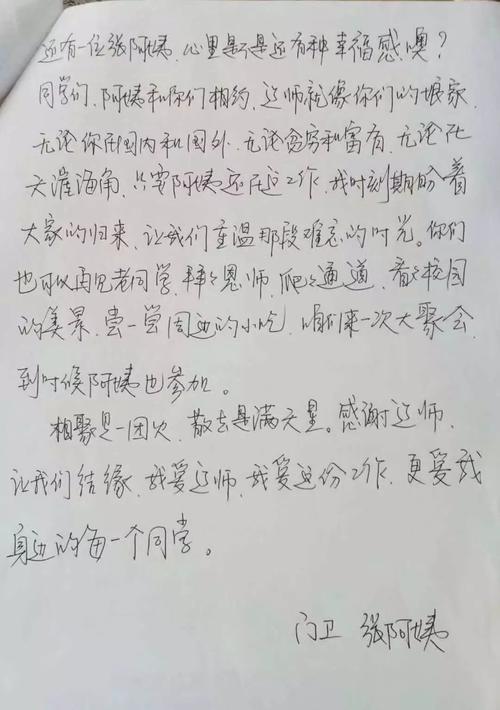 还有一位张阿姨，心里是不是还有种幸福感噢？
同学们，阿姨和你们相约，辽师就像你们的娘家，
无论你在国内和国外，无论贫穷和富有，无论在
天涯海角，只要阿姨还在这工作，我时刻期盼着
大家的归来，让我们重温那段难忘的时光。你们
也可以再见老同学，拜拜恩师，爬爬通道，看看校园
的美景，尝一尝周边的小吃，咱们来一次大聚会，
到时候阿姨也参加。
相聚是一团火，散去是满天星。感谢辽师，
让我们结缘，我爱辽师，我爱这份工作，更爱我
身边的每一个同学。
门卫 张阿姨